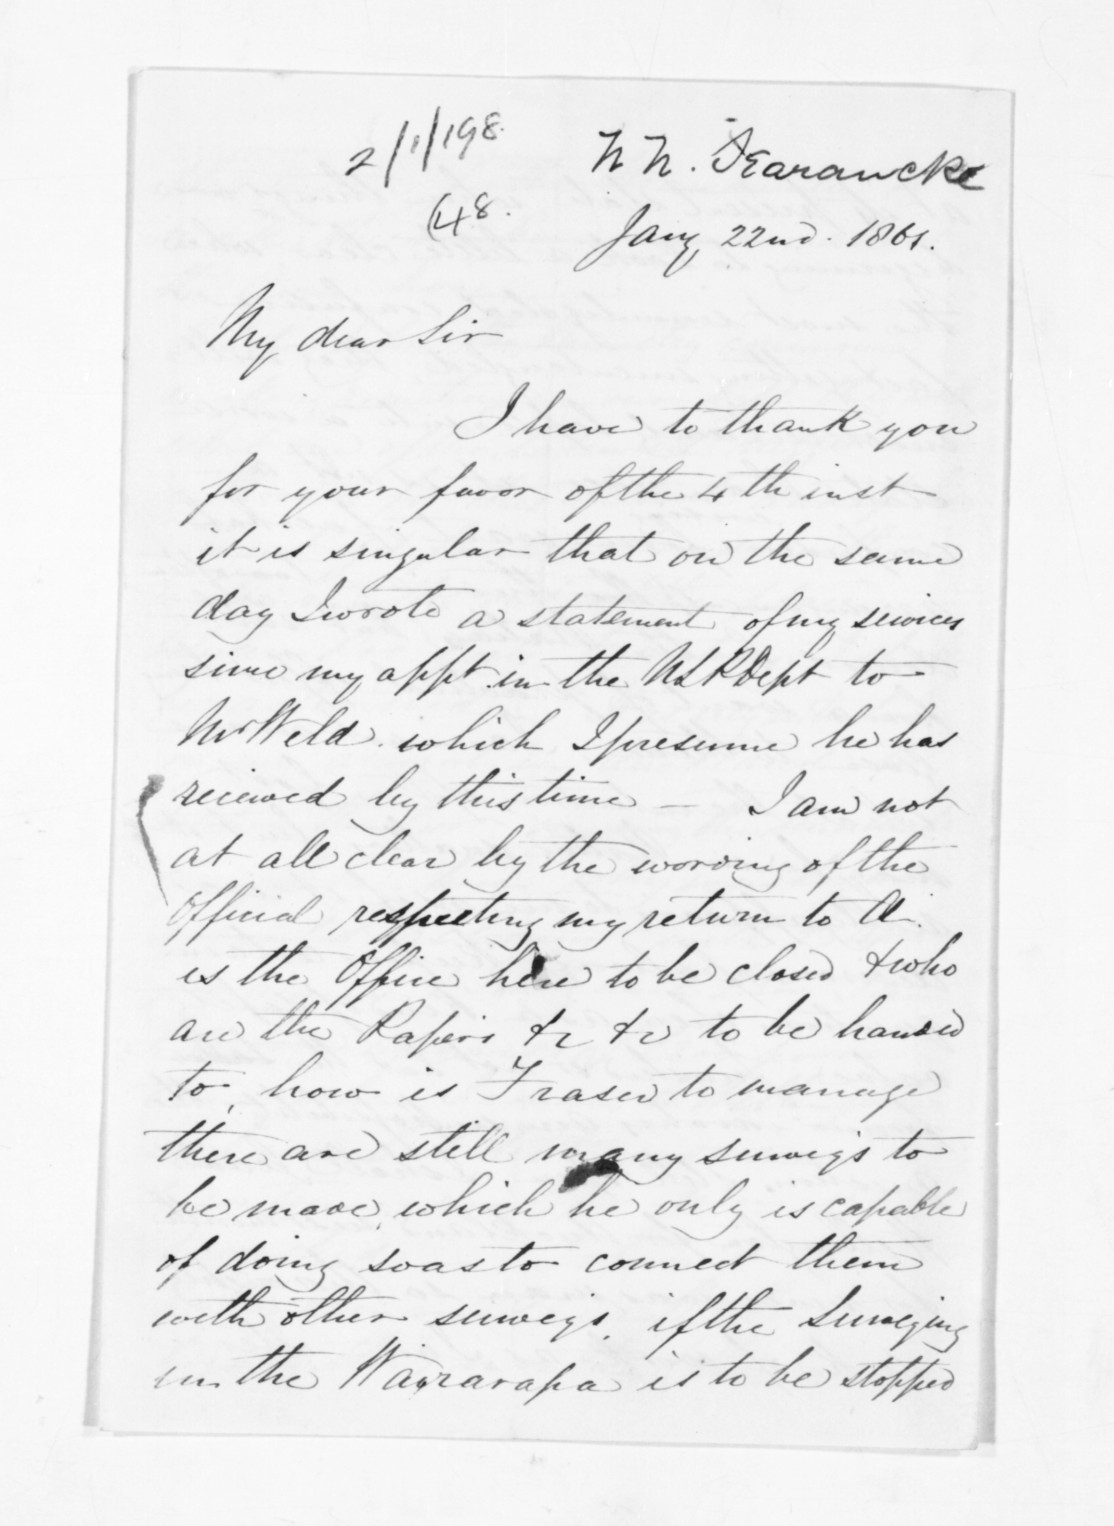 2/1/198.
(48.
N N. Searancke
Jany 22nd. 1861.
My dear Sir
I have to thank you
for your favor of the 4th inst
it is singular that on the same
day I wrote a statement of my services
since my appt. in the N L P Dept to
Mr Weld. which I presume he has
received by this time — I am not
at all clear by the wording of the
Official respecting my return to A.
is the Office here to be closed & who
are the Papers &c &c to be handed
to, how is Fraser to manage
there are still many surveys to
be made, which he only is capable
of doing so as to connect them
with other surveys. if the Surveying
in the Wairarapa is to be stopped